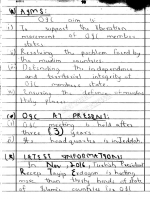 (iv) AIMS:
OIC aim is
i) To support the liberation
movement of OIC member
states.
ii) Resolving the problem faced by
the muslim countries.
iii) Defending the independence
and territorial integrity of
OIC member state.
iv) Ensuring the defence of muslim
Holy places.
(v) OIC AT PRESENT:
i) OIC meeting is held after
three (3) years
ii) Its headquarter is in Jeddah.
LATEST INFORMATION:
In Nov, 2016, Turkish President
Recep Tayyip Erdogan is hosting
more than thirty heads of state
of Islamic countries for OIC